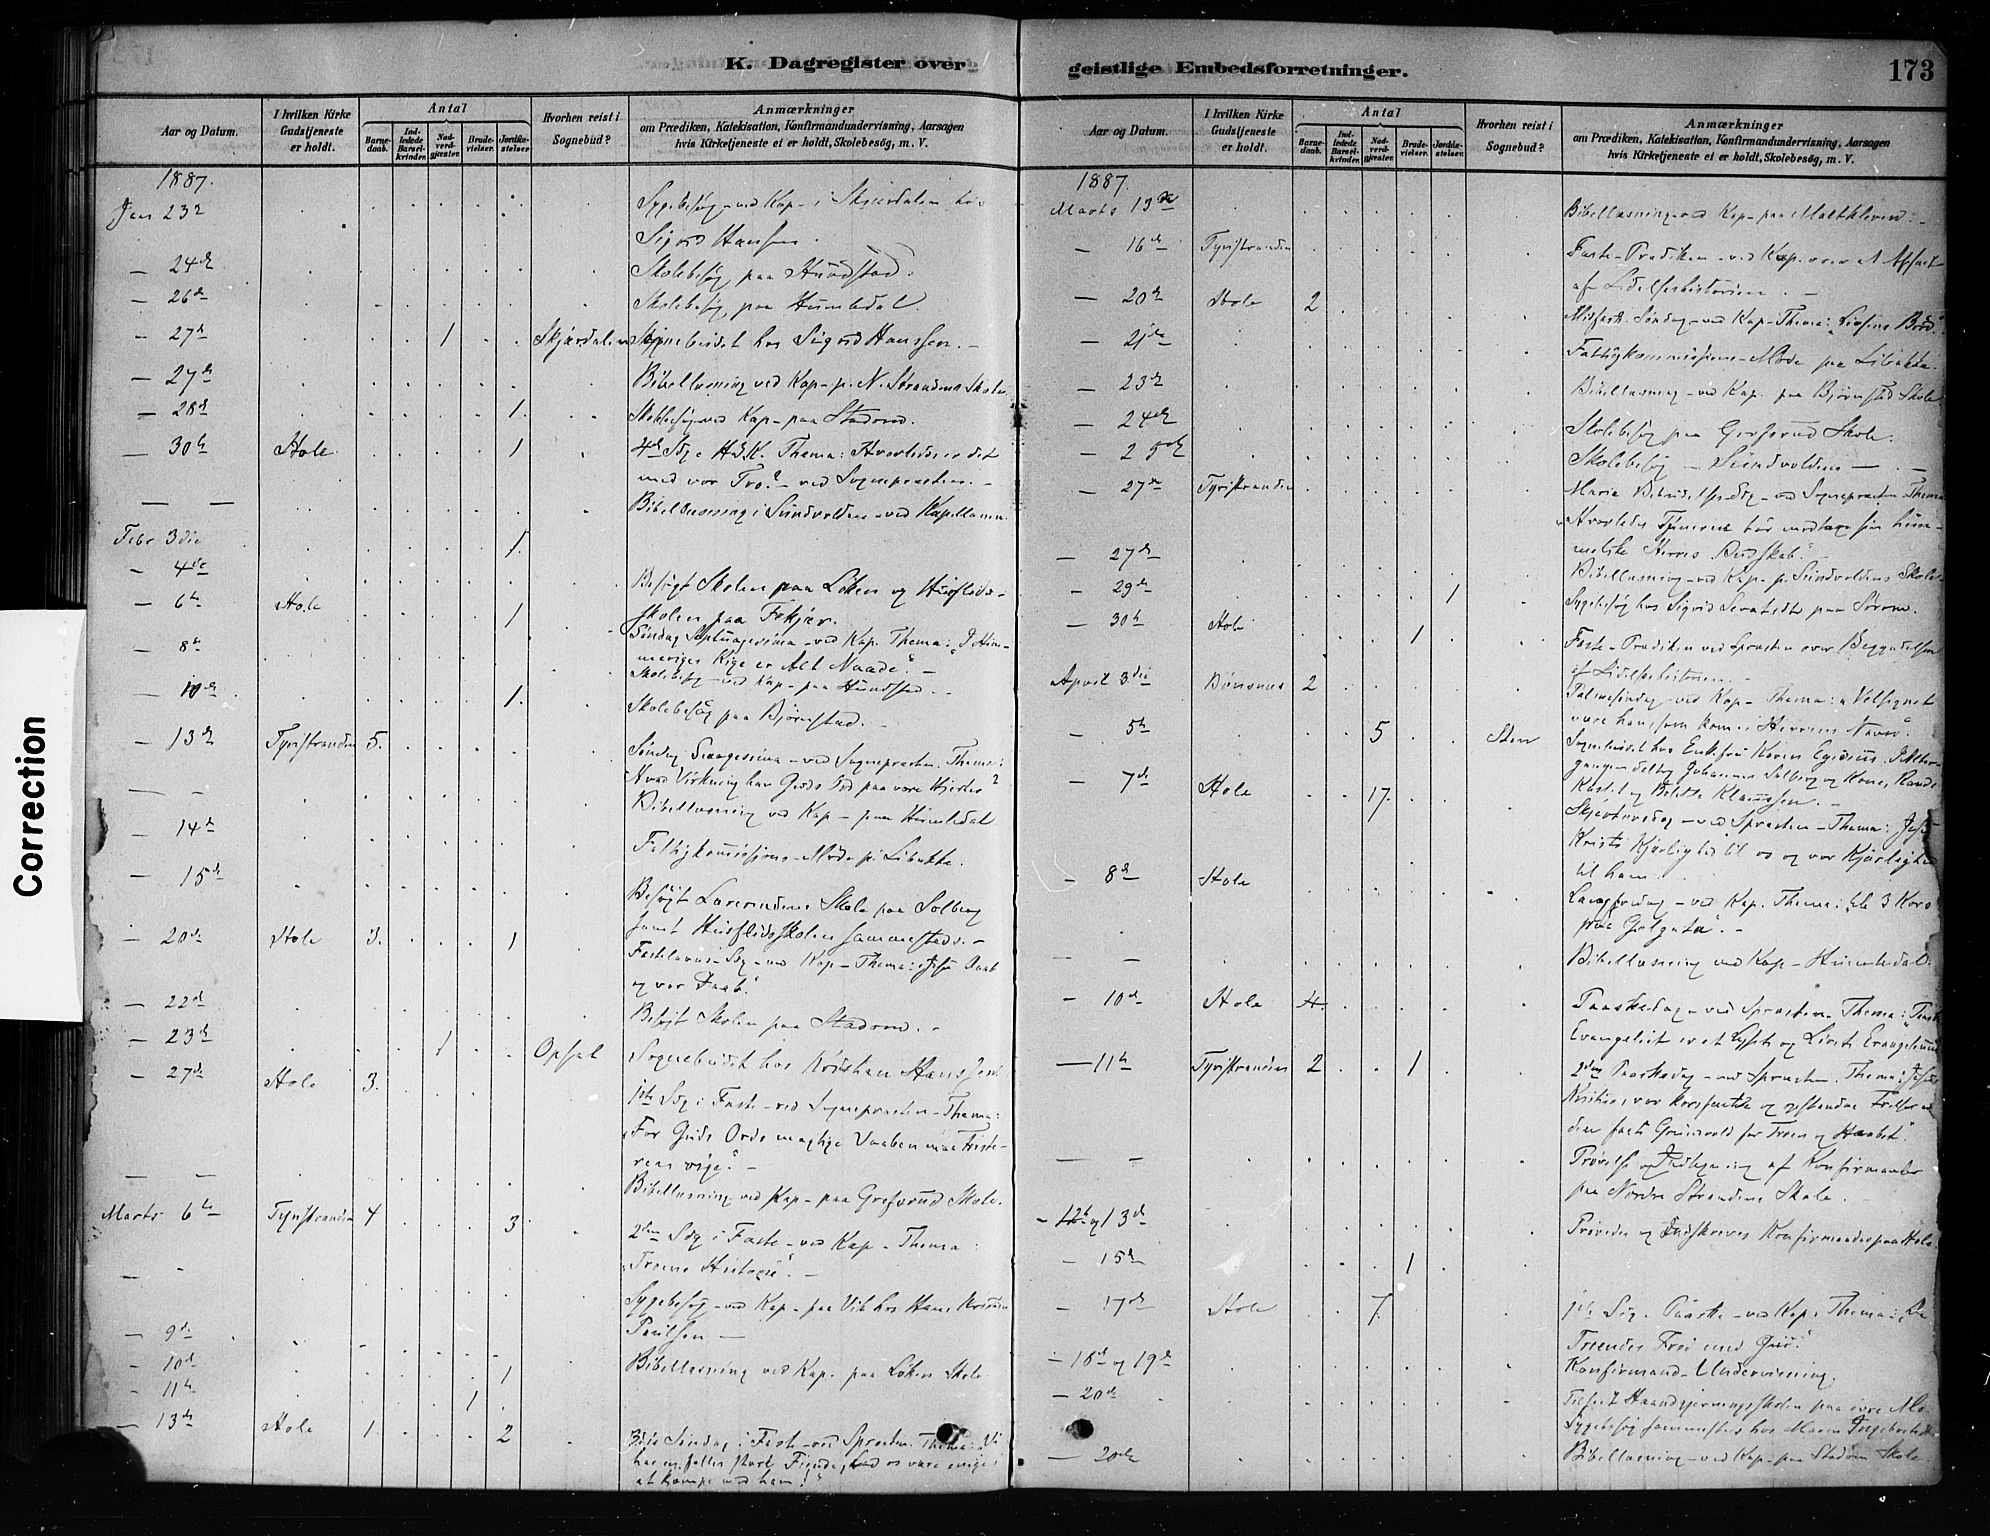 K. Dagregister over
Aar og Datum.
I hvilken Kirke Gudstjeneste er holdt.
Antal
Barne-daab.
Ind-ledede Barsel-kvinder.
Nad-verd-gjester.
Brude-vielser.
Jordfæ-stelser
Hvorhen reist i Sognebud?
Anmærkninger
om Prædiken, Katekisation, Konfirmandundervisning, Aarsagen
hvis Kirketjeneste ei er holdt, Skolebesög, m. V.
1887.
Jan 23de Sygebesøg ved Kap. i Skjærdalen hos
Sigrid Hansen.
— 24de Skolebesøg paa Hundstad.
— 26de Skolebesøg paa Humledal.
— 27de 1 Skjærdalen Sognebudet hos Sigrid Hanssen.
— 27de Bibellæsning ved Kap. p. N. Strandens Skole
— 28de 1. Skolebesøg ved Kap. paa Stadum.
— 30te Hole 1 4de Sdg. e H.3.K. Thema: Hvorledes er det
med vor Tro? ved Sognepræsten.
— — Bibellæsning i Sundvolden ved Kapellanen.
Febr 3die 1.
— 4de Besøgt Skolen paa Løken og Husflids-
skolen paa Fekjær.
— 6te Hole 1 Søndag Septuagesima ved Kap. Thema: "I Him-
meriges Rige er Alt Naade."
— 8de Skolebesøg ved Kap. paa Hundstad.
— 10de 1. Skolebesøg paa Bjørnstad.
— 13de Tyristranden 5. Søndag Sexagesima ved Sognepræsten. Thema:
Hvad Virkning har Guds Ord paa vore Hjerter?
— — Bibellæsning ved Kap. paa Humledal.
— 14de Fattigkommissions-Møde p. Libakke.
— 15de Besøgt Lærerindens Skole paa Solberg
samt Husflidsskolen sammesteds.
— 20de Hole 3. 1 Fastelavns-Sdg. ved Kap. Thema: "Jesu Daab
og vor Daab."
— 22de Besøgt Skolen paa Stadum.
— 23de 1 Opsal Sognebudet hos Kristian Hanssen.
— 27de Hole 3. 1ste Sdg. i Faste ved Sognepræsten Thema:
"For Guds Ords mægtige Vaaben maa Friste-
ren vige."
— — Bibellæsning ved Kap. paa Gresrud Skole.
Marts 6te Tyristranden 4 3 2den Sdg i Faste ved Kap. Thema:
"Troens Historie".
— — Sygebesøg ved Kap. paa Vik hos Hans Kristian
Paulsen
— 9de
— 10de 1 Bibellæsning ved Kap. paa Løken Skole
— 11te 1
— 13de Hole 1 2 3die Søndag i Faste ved Spræsten. Thema: "Vi
have en fælles stærk Fiende, lad os være enige i
at kampe med ham!"
geistlige Embedsforretninger.
173
Aar og Datum.
I hvilken Kirke Gudstjeneste er holdt.
Antal
Barne-daab.
Ind-ledede Barsel-kvinder.
Nad-verd-gjester.
Brude-vielser.
Jordfæ-stelser.
Hvorhen reist i Sognebud?
Anmærkninger
om Prædiken, Katekisation, Konfirmandundervisning, Aarsagen
hvis Kirketjeneste ei er holdt, Skolebesög, m. V.
1887.
Marts 13de Bibellæsning ved Kap. paa Maltkleven.
— 16de Tyristranden Faste-Prædiken ved Kap. over et Afsnit
af Lidelseshistorien.
— 20de Hole 2 Midfaste Søndag ved Kap. Thema: "Livsens Brød."
— 21de Fattigkommissions-Møde paa Libakke.
— 23de Bibellæsning ved Kap. paa Bjørnstad Skole
— 24de Skolebesøg paa Gresrud Skole.
— 25de Skolebesøg — Sundvolden —
— 27de Tyristranden Maria Bebudelses Sdg. ved Sognepræsten Thema
"Hvorledes Tjeneren bør modtage sin him-
melske Herres Budskab."
— 27de Bibellæsning ved Kap. p. Sundvoldens Skole
— 29de 1 Sygebesøg hos Sigrid paa Sørum.
— 30te Hole 1 Faste-Prædiken ved Spræsten over Begyndelsen
af Lidelseshistorien.
April 3die Bønsnes 2 Palmesøndag ved Kap. Thema: "Velsignet
være han, som kom i Herrens Navn".
— 5te 5 Sten Sognebudet hos Enkefru Karen Egidius. I Alter-
gangen deltog Johannes Solberg og Kone, Randi
Kastet og Beldte Klaussen.
— 7de Hole 17. Skjærtorsdag ved Spræsten Thema: Jesu
Kristi Kjærlighed til os og vor Kjærlighed
til ham.
— 8de Hole Langfredag ved Kap. Thema: "de 3 Kors
paa Golgata".
— — Bibellæsning ved Kap. Humledal.
— 10de Hole 4. Paaskedag ved Spræsten. Thema: "Paaske
Evangeliet er et Lysets og Livets Evangelium
— 11te Tyristranden 2 1 2den Paaskedag ved Spræsten. Thema: "Jesus
Kristus, vor korsfæstede og opstandne Frelser er
den faste Grundvold for Troen og Haabet".
— — Prøvelse og Indtegning af Konfirmander
paa Nordre Strandens Skole.
— 12te og 13de Prøvedes og Indskreves Konfirmander paa Hole.
— 15de 1
— 17de Hole 7. 1ste Sdg. e. Paaske ved Kap. Thema: "De
Troendes Fred med Gud."
— 18de og 19de Konfirmand-Undervisning.
— 20de Tilseet Haandgjerningsskolen paa øvre Mo
Sygebesøg sammesteds hos Maren
— 20de Bibellæsning ved Kap. paa Stadum Skole